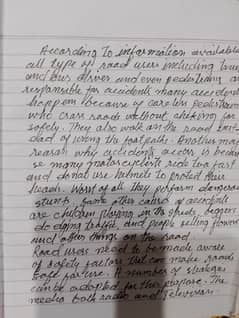 According To information available
all type of road users including truck
and bus driver and even pedestrians are
responsible for accidents many accident
happen because of care less pedestrians
who cross roads without chiking for
safely. They also walk on the road inst-
ead of using the footpath. Another major
reason why accidents occurs is because
so many motorcyclists ride too fast
and do not use helmets to protect their
heads. Worst of all they perform dangerous
stunts. Some other causes of accidents
are children playing in the streets, beggers
do doing traffic, and people selling flowers
and other things on the road
Road users need to be made aware
of safety factors that can make roads
safe furture. A number of strateges
can be adopted for this purpose. The
media both radio and Television.